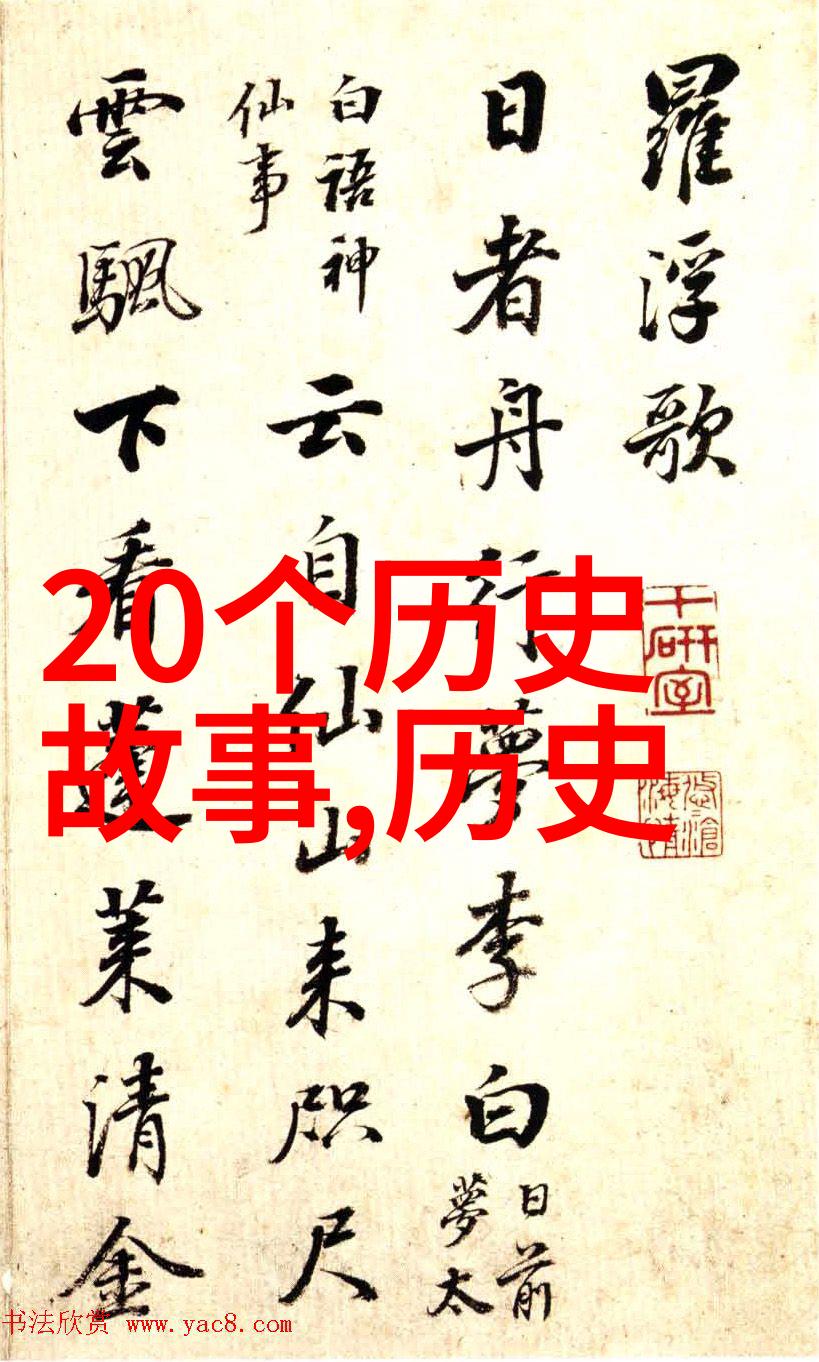 羅浮歌
日者舟行夢李白
日前夢太
白語神仙事
云自仙山来咫尺
雲駟下看蓬莱清金
20个历史
故事,历史
千研室
书法欣赏 www.yac8.com